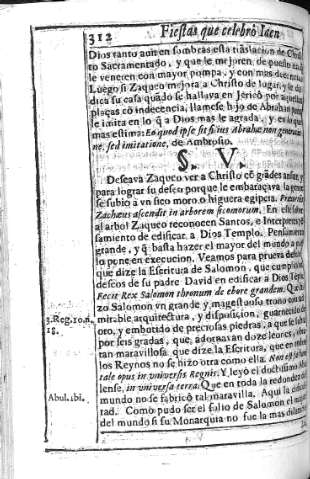 312 Fiestas que celebrò Iaen
Dios tanto aun en sombras esta traslacion de Christo
to Sacramentado, y que le mejoren de puesto
le veneren con mayor pompa, y con mas decencia
Luego si Zaqueo mejora a Christo de lugar, y le dedica
dica su casa quãdo se hallava en Jericò por aquellas
plaças cõ indecencia, llamese hijo de Abrahan
le imita en lo q̃ a Dios mas le agrada, y en lo que
mas estima: Eo quod ipse sit filius Abrahæ non generatione
ne, sed imitatione, de Ambrosio.
S. V.
Deseava Zaqueo ver a Christo cõ grãdes ansias, y
para lograr su deseo porque le embaraçava la gente
se subio à vn sico moro o higuera egipcia.
Zachæus ascendit in arborem sicomorum. En este
al arbol Zaqueo reconocen Santos, e Interpretes
samiento de edificar a Dios Templo. Pensamiento
grande, y q̃ basta hazer el mayor del mundo a
lo pone en execucion. Veamos para prueva
que dize la Escritura de Salomon, que cumpliendo
deseos de su padre David en edificar a Dios Templo
Fecit Rex Salomon thronum de ebore grandem.
zo Salomon vn grande y magestuoso trono con
3. Reg. 10. n. mirable arquitectura, y disposicion, guarnecido de
18. oro, y embutido de preciosas piedras, a que se subia
por seis gradas, que, adornavan doze leones, obra
tan maravillosa que dize la Escritura, que en
los Reynos no se hizo otra como ella. Non est factum
tale opus in universis Regnis. Y leyò el doctissimo Abu
Abul. ibi. lense, in universa terra. Que en toda la redondez del
mundo no se fabricò tal maravilla. Aqui la dificul
tad. Como pudo ser el solio de Salomon el mayor
del mundo si su Monarquia no fue la mas dilatada